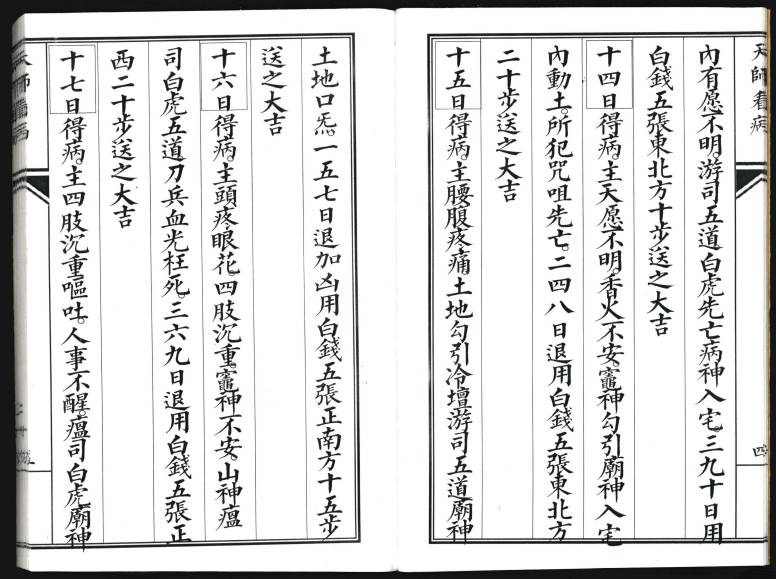 天師看病
四
內有愿不明游司五道白虎先亡病神入宅。三九十日用
白錢五張東北方十步送之大吉
十四日得病。主天愿不明。香火不安。竈神勾引廟神入宅
內動土。所犯咒咀先亡。二四八日退用白錢五張東北方
二十步送之大吉
十五日得病。主腰腹疼痛。土地勾引冷壇游司五道廟神
土地口炁。一五七日退加凶用白錢五張正南方十五步
送之大吉
十六日得病。主頭疼眼花。四肢沉重。竈神不安。山神瘟
司白虎五道刀兵血光枉死。三六九日退用白錢五張正
西二十步送之大吉
十七日得病。主四肢沉重嘔吐。人事不醒。瘟司白虎廟神
天師看病